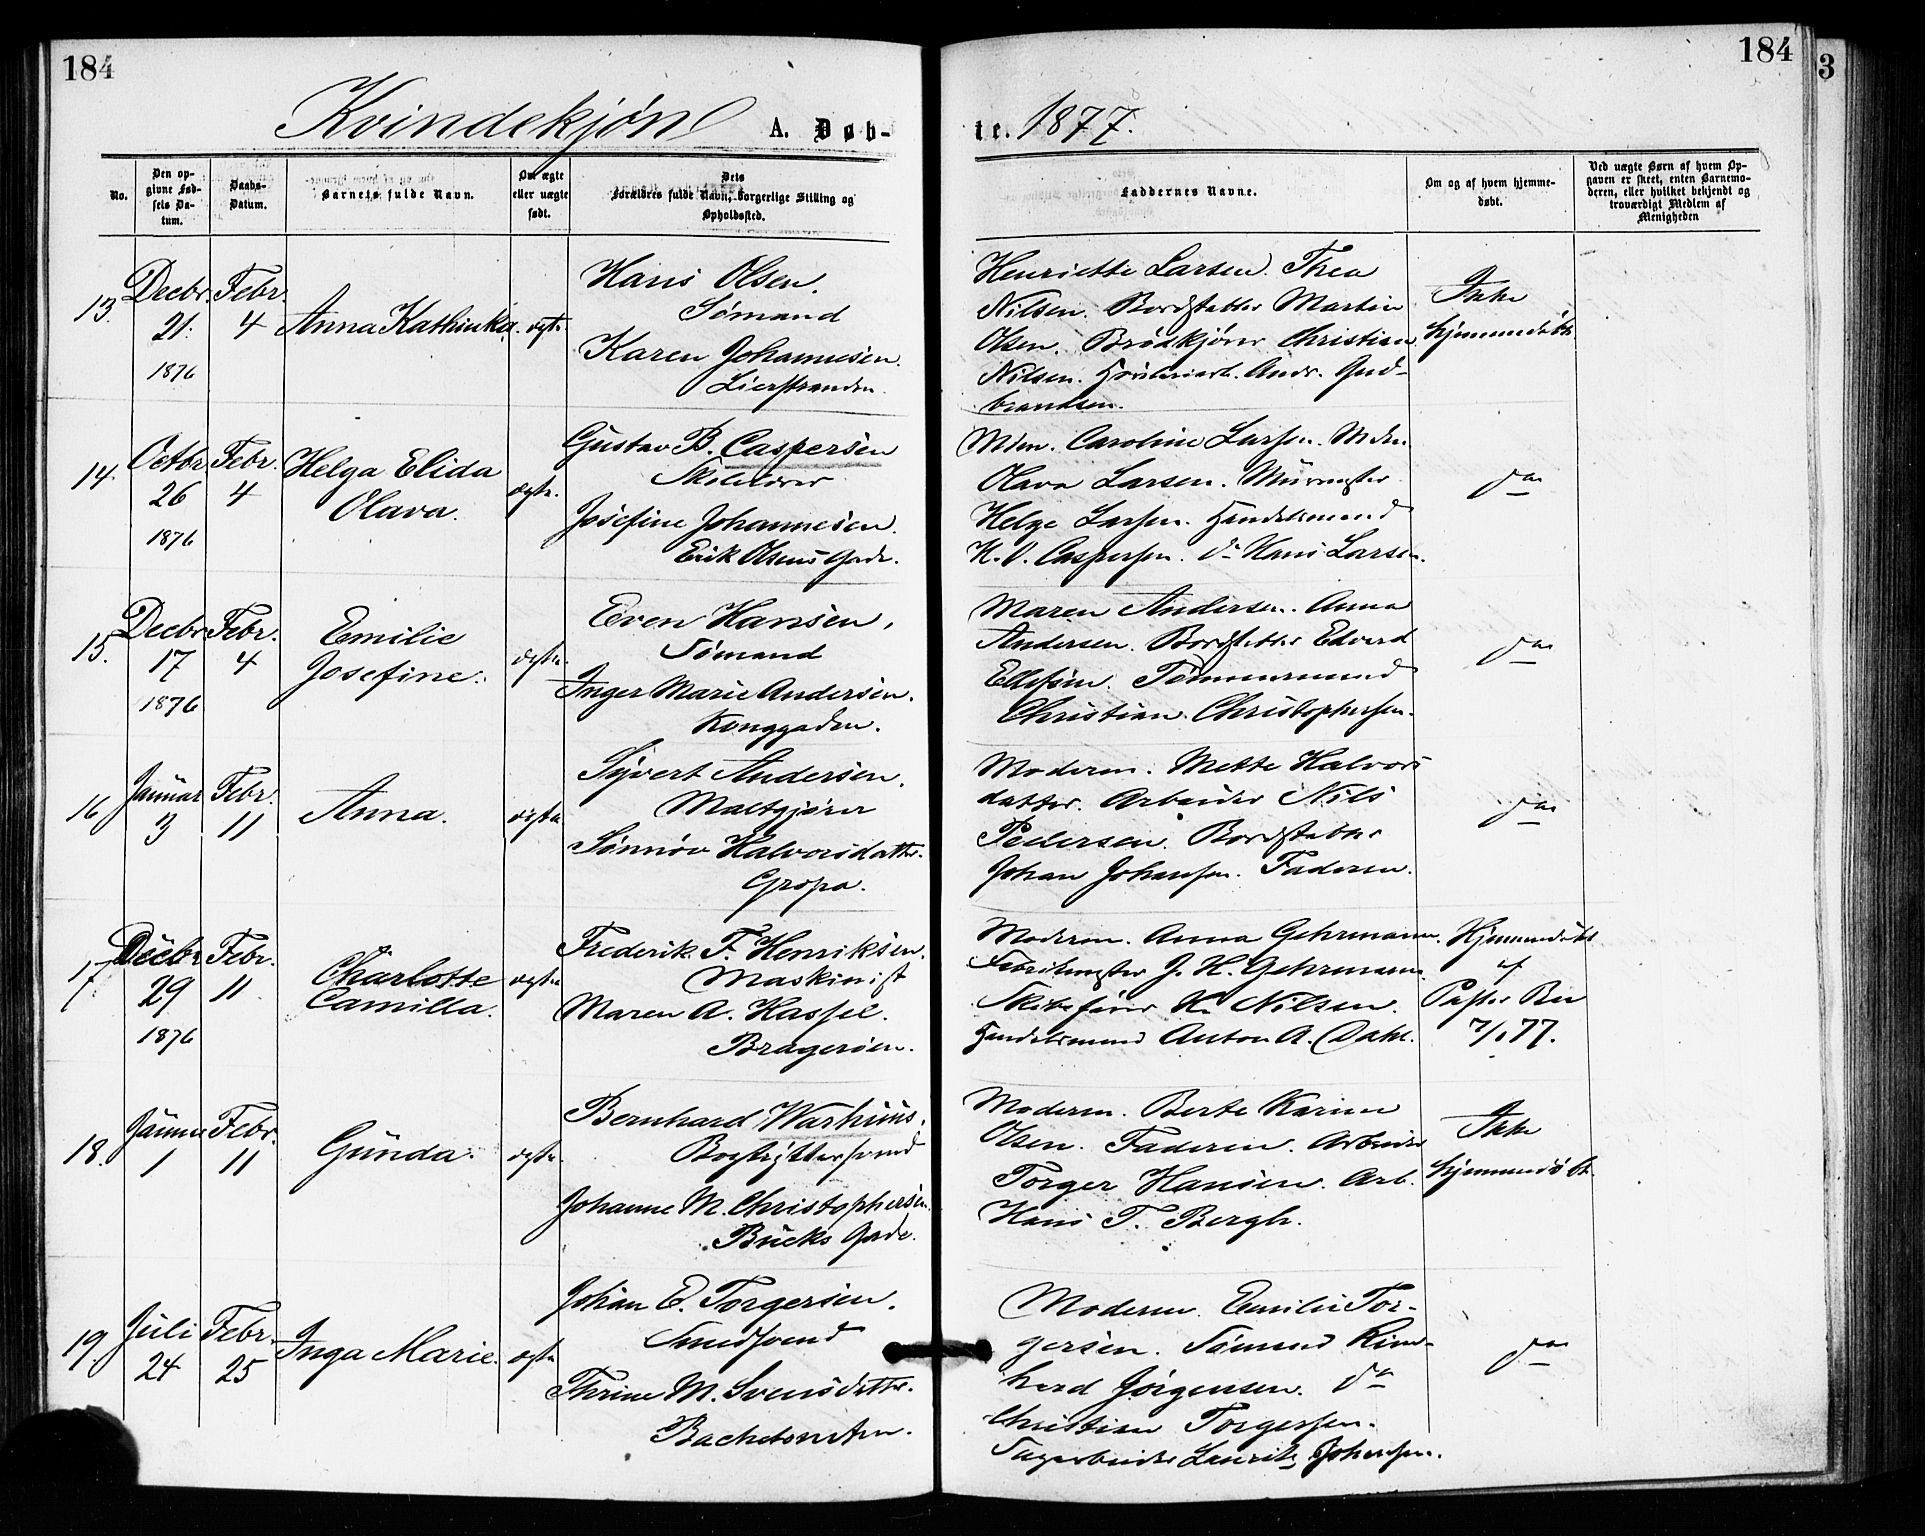 184
184
3
Kvindekjøn
A. Døb-
te. 1877.
No.
Den op-
givne Fød-
sels Da-
tum.
Daabs-
Datum.
Barnets fulde Navn.
Om ægte
eller uægte
født.
Dets
Forældres fulde Navn, borgerlige Stilling og
Opholdssted.
Faddernes Navne.
Om og af hvem hjemme-
døbt.
Ved uægte Børn af hvem Op-
gaven er skeet, enten Barnemo-
deren, eller hvilket bekjendt og
troværdigt Medlem af
Menigheden
13.
Decbr.
21.
1876
Febr.
4
Anna Kathinka.
ægte.
Hans Olsen.
Sømand
Karen Johannesen.
Lierstranden.
Henriette Larsen. Thea
Nilsen. Bordstabler Martin
Olsen. Brødkjører Christian
Nilsen. Andr. Gud-
brandsen.
Ikke
hjemmedøbt.
14.
Octbr.
26
1876
Febr.
4
Helga Elida
Olava.
ægte.
Gustav B. Caspersen
Skibsfører
Josefine Johannesen.
Erik Olsens Gade.
Mdm. Caroline Larsen. Mdm.
Olava Larsen. Muurmester
Helge Larsen. Handelsmand
H. O. Caspersen. do Hans Larsen.
do
15.
Decbr.
17
1876
Febr.
4
Emilie
Josefine.
ægte.
Even Hansen,
Sømand
Inger Marie Andersen.
Konggaden.
Maren Andersen. Anna
Andersen. Bordstabler Edvard
Ellefsen. Tømmermand
Christian Christophersen.
do
16
Januar
3
Febr.
11
Anna.
ægte
Syvert Andersen.
Maltgjører
Sønnøv Halvorsdatter.
Gropa.
Moderen. Mette Halvors
datter. Arbeider Nils
Pedersen. Bordstabler
Johan Johansen. Faderen.
do
17.
Decbr
29
1876
Febr.
11
Charlotte
Camilla.
ægte
Frederik F. Henriksen.
Maskinist
Maren A. Hassel.
Bragerøen.
Moderen. Anna Gehrmann.
Fabrikmester J. H. Gehrmann.
Skibsfører H. Nilsen.
Handelsmand Anton A. Dahl.
Hjemmedøbt
af
Pastor Bu
7/1 77.
18.
Januar
1
Febr.
11
Gunda.
ægte.
Bernhard Warhuus.
Bogtrykkersvend
Johanne M. Christophersen.
Bucks Gade.
Moderen. Berte Karine
Olsen. Faderen. Arbeider
Torger Hansen. Arb.
Hans T. Bergh.
Ikke
hjemmedøbt.
19.
Juli
24
Febr.
25
Inga Marie.
ægte
Johan E. Torgersen.
Smedsvend
Thrine M. Svensdatter.
Moderen. Emilie Tor-
gersen. Sømand
Jørgensen. do
Christian Torgersen.
Sagarbeider Lauritz Johansen.
do